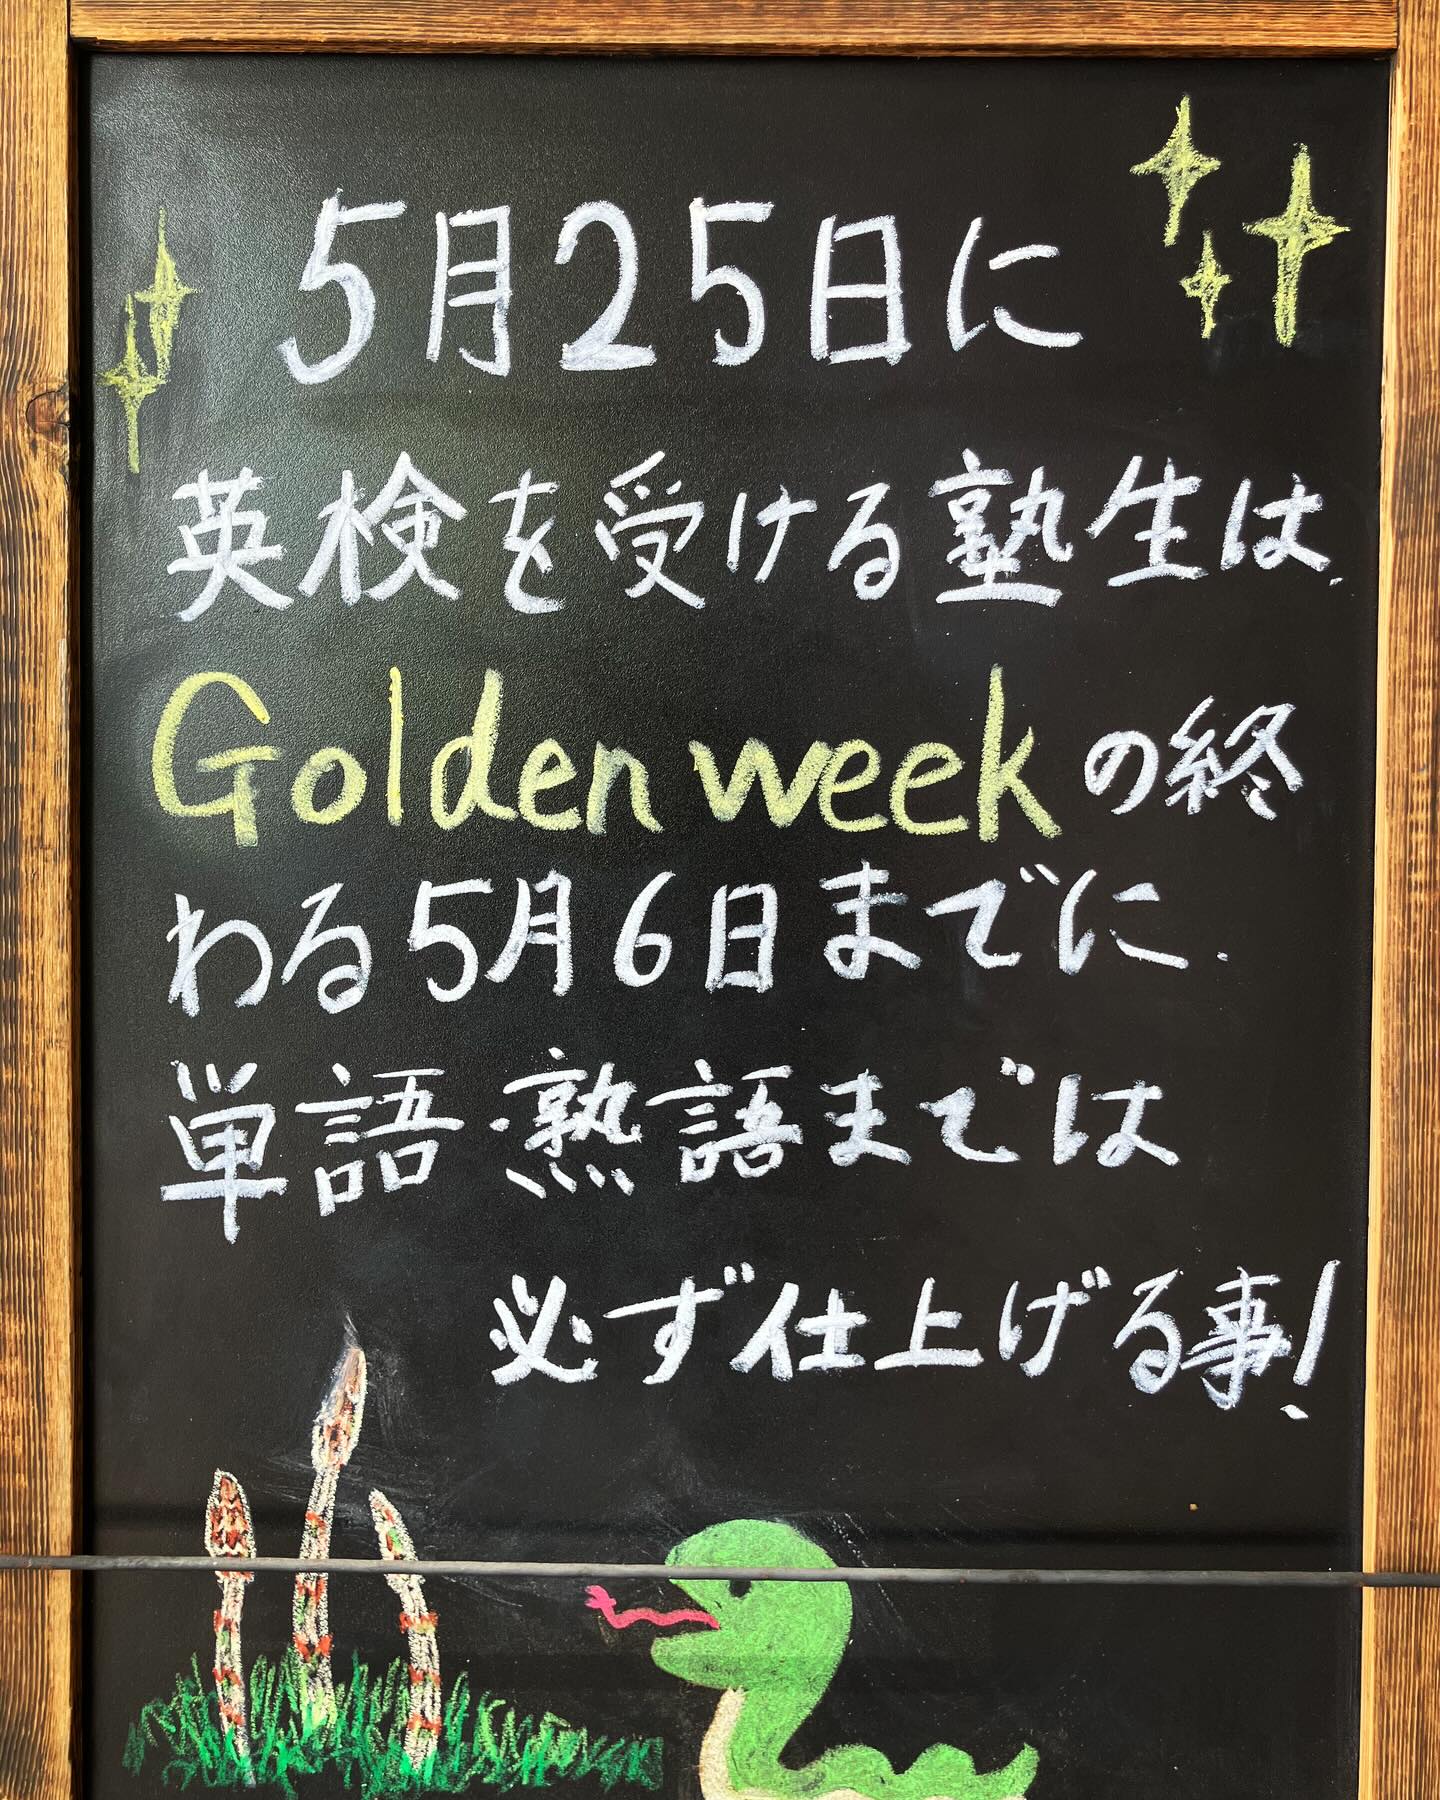 5月25日に
英検を受ける塾生は、
Golden weekの終
わる5月6日までに、
単語・熟語までは
必ず仕上げる事!